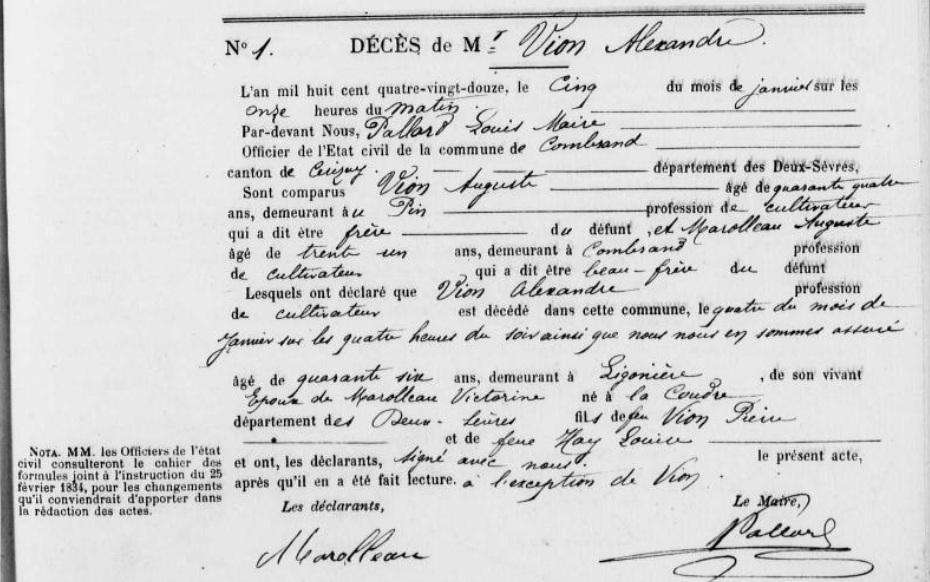 N° 1. DÉCÈS de Mr Vion Alexandre.
L'an mil huit cent quatre-vingt-douze, le Cinq du mois de janvier sur les
onze heures du matin.
Par-devant Nous, Pallard Louis Maire
Officier de l'Etat civil de la commune de Combrand
canton de Cerizay. département des Deux-Sèvres,
Sont comparus Vion Auguste âgé de quarante quatre
ans, demeurant au Pin profession de cultivateur
qui a dit être frère du défunt, et Marolleau Auguste
âgé de trente un ans, demeurant à Combrand profession
de cultivateur qui a dit être beau-frère du défunt
Lesquels ont déclaré que Vion Alexandre profession
de cultivateur est décédé dans cette commune, le quatre du mois de
Janvier sur les quatre heures du soir ainsi que nous nous en sommes assuré
âgé de quarante six ans, demeurant à Ligonière, de son vivant
Epoux de Marolleau Victorine né à la Coudre
département des Deux-Sèvres fils de feu Vion Pierre
et de feue Hay Louise
et ont, les déclarants, signé avec nous. le présent acte,
après qu'il en a été fait lecture. à l'exception de Vion.
Les déclarants, Le Maire,
Marolleau Pallard
NOTA. MM. les Officiers de l'état
civil consulteront le cahier des
formules joint à l'instruction du 25
février 1834, pour les changements
qu'il conviendrait d'apporter dans
la rédaction des actes.